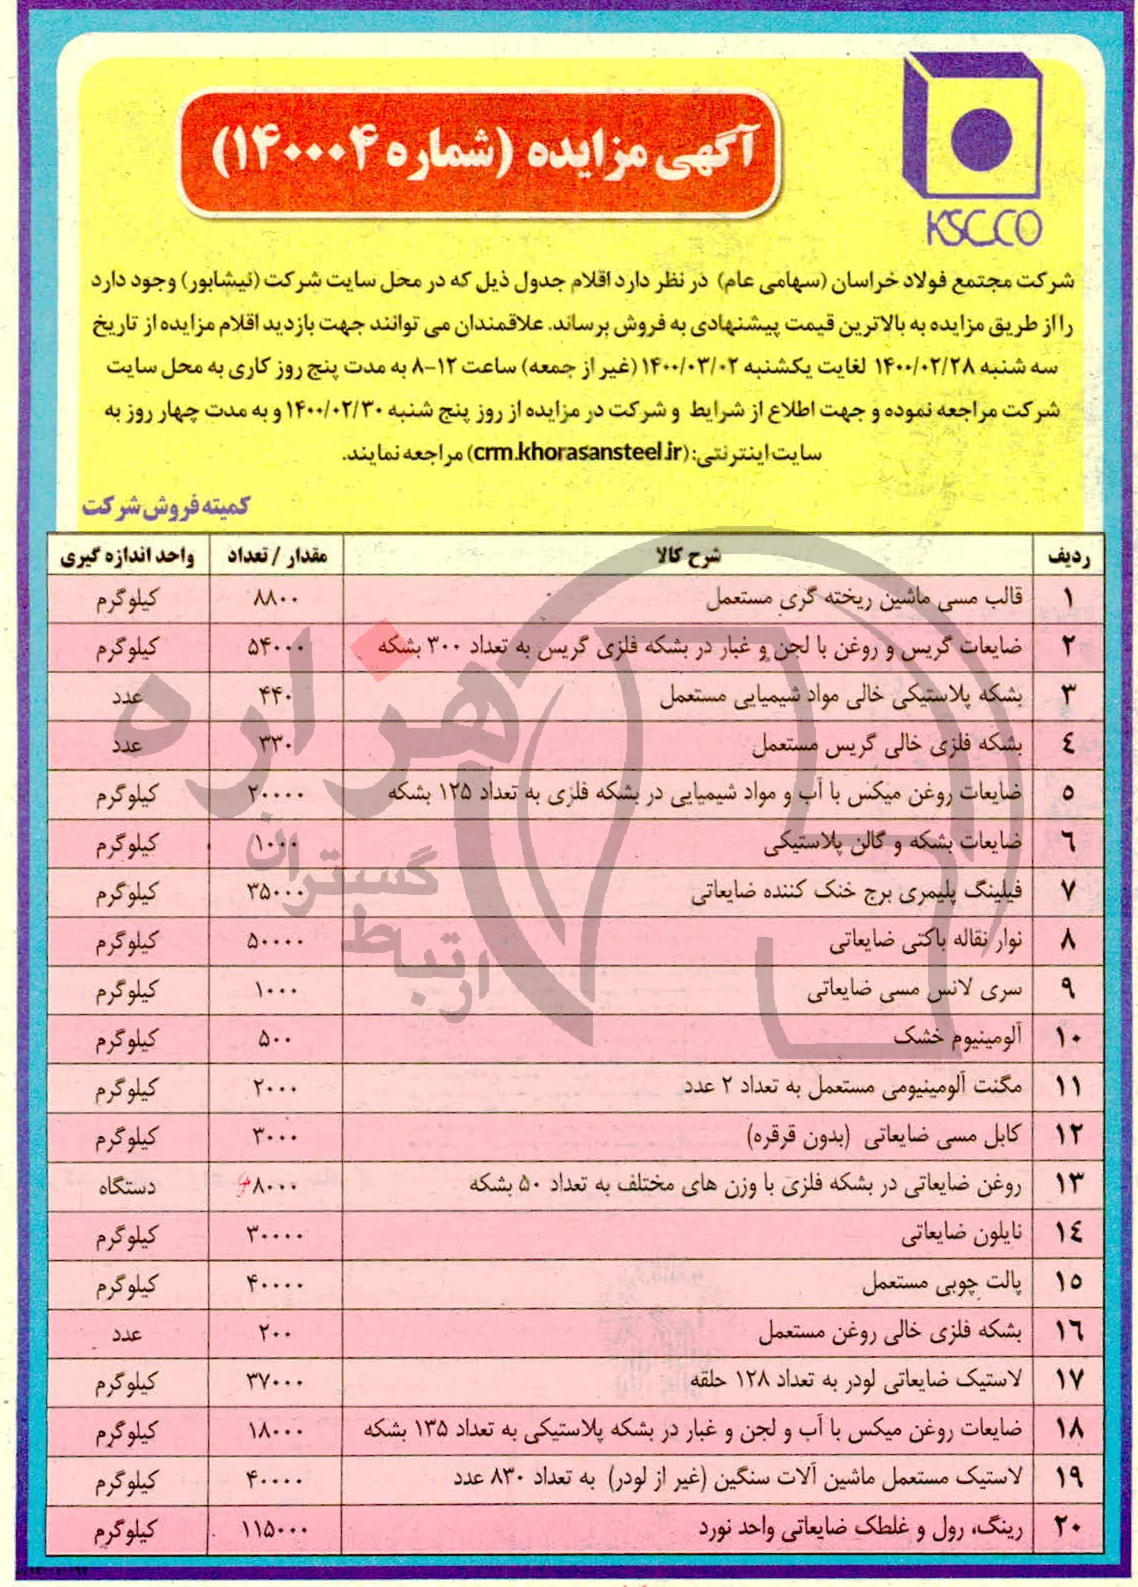 KSC.CO
آگهی مزایده (شماره ۱۴۰۰۰۴)
شرکت مجتمع فولاد خراسان (سهامی عام) در نظر دارد اقلام جدول ذیل که در محل سایت شرکت (نیشابور) وجود دارد
را از طریق مزایده به بالاترین قیمت پیشنهادی به فروش برساند. علاقمندان می توانند جهت بازدید اقلام مزایده از تاریخ
سه شنبه ۱۴۰۰/۰۲/۲۸ لغایت یکشنبه ۱۴۰۰/۰۳/۰۲ (غیر از جمعه) ساعت ۱۲-۸ به مدت پنج روز کاری به محل سایت
شرکت مراجعه نموده و جهت اطلاع از شرایط و شرکت در مزایده از روز پنج شنبه ۱۴۰۰/۰۲/۳۰ و به مدت چهار روز به
سایت اینترنتی: (crm.khorasansteel.ir) مراجعه نمایند.
کمیته فروش شرکت
ردیف شرح کالا مقدار / تعداد واحد اندازه گیری
۱ قالب مسی ماشین ریخته گری مستعمل ۸۸۰۰ کیلوگرم
۲ ضایعات گریس و روغن با لجن و غبار در بشکه فلزی گریس به تعداد ۳۰۰ بشکه ۵۴۰۰۰ کیلوگرم
۳ بشکه پلاستیکی خالی مواد شیمیایی مستعمل ۴۴۰ عدد
۴ بشکه فلزی خالی گریس مستعمل ۳۳۰ عدد
۵ ضایعات روغن میکس با آب و مواد شیمیایی در بشکه فلزی به تعداد ۱۲۵ بشکه ۲۰۰۰۰ کیلوگرم
۶ ضایعات بشکه و گالن پلاستیکی ۱۰۰۰ کیلوگرم
۷ فیلینگ پلیمری برج خنک کننده ضایعاتی ۳۵۰۰۰ کیلوگرم
۸ نوار نقاله باکتی ضایعاتی ۵۰۰۰۰ کیلوگرم
۹ سری لانس مسی ضایعاتی ۱۰۰۰ کیلوگرم
۱۰ آلومینیوم خشک ۵۰۰ کیلوگرم
۱۱ مگنت آلومینیومی مستعمل به تعداد ۲ عدد ۲۰۰۰ کیلوگرم
۱۲ کابل مسی ضایعاتی (بدون قرقره) ۳۰۰۰ کیلوگرم
۱۳ روغن ضایعاتی در بشکه فلزی با وزن های مختلف به تعداد ۵۰ بشکه ۸۰۰۰ دستگاه
۱۴ نایلون ضایعاتی ۳۰۰۰۰ کیلوگرم
۱۵ پالت چوبی مستعمل ۴۰۰۰۰ کیلوگرم
۱۶ بشکه فلزی خالی روغن مستعمل ۲۰۰ عدد
۱۷ لاستیک ضایعاتی لودر به تعداد ۱۲۸ حلقه ۳۷۰۰۰ کیلوگرم
۱۸ ضایعات روغن میکس با آب و لجن و غبار در بشکه پلاستیکی به تعداد ۱۳۵ بشکه ۱۸۰۰۰ کیلوگرم
۱۹ لاستیک مستعمل ماشین آلات سنگین (غیر از لودر) به تعداد ۸۳۰ عدد ۴۰۰۰۰ کیلوگرم
۲۰ رینگ، رول و غلطک ضایعاتی واحد نورد ۱۱۵۰۰۰ کیلوگرم
هزاره
گستران
ارتباط